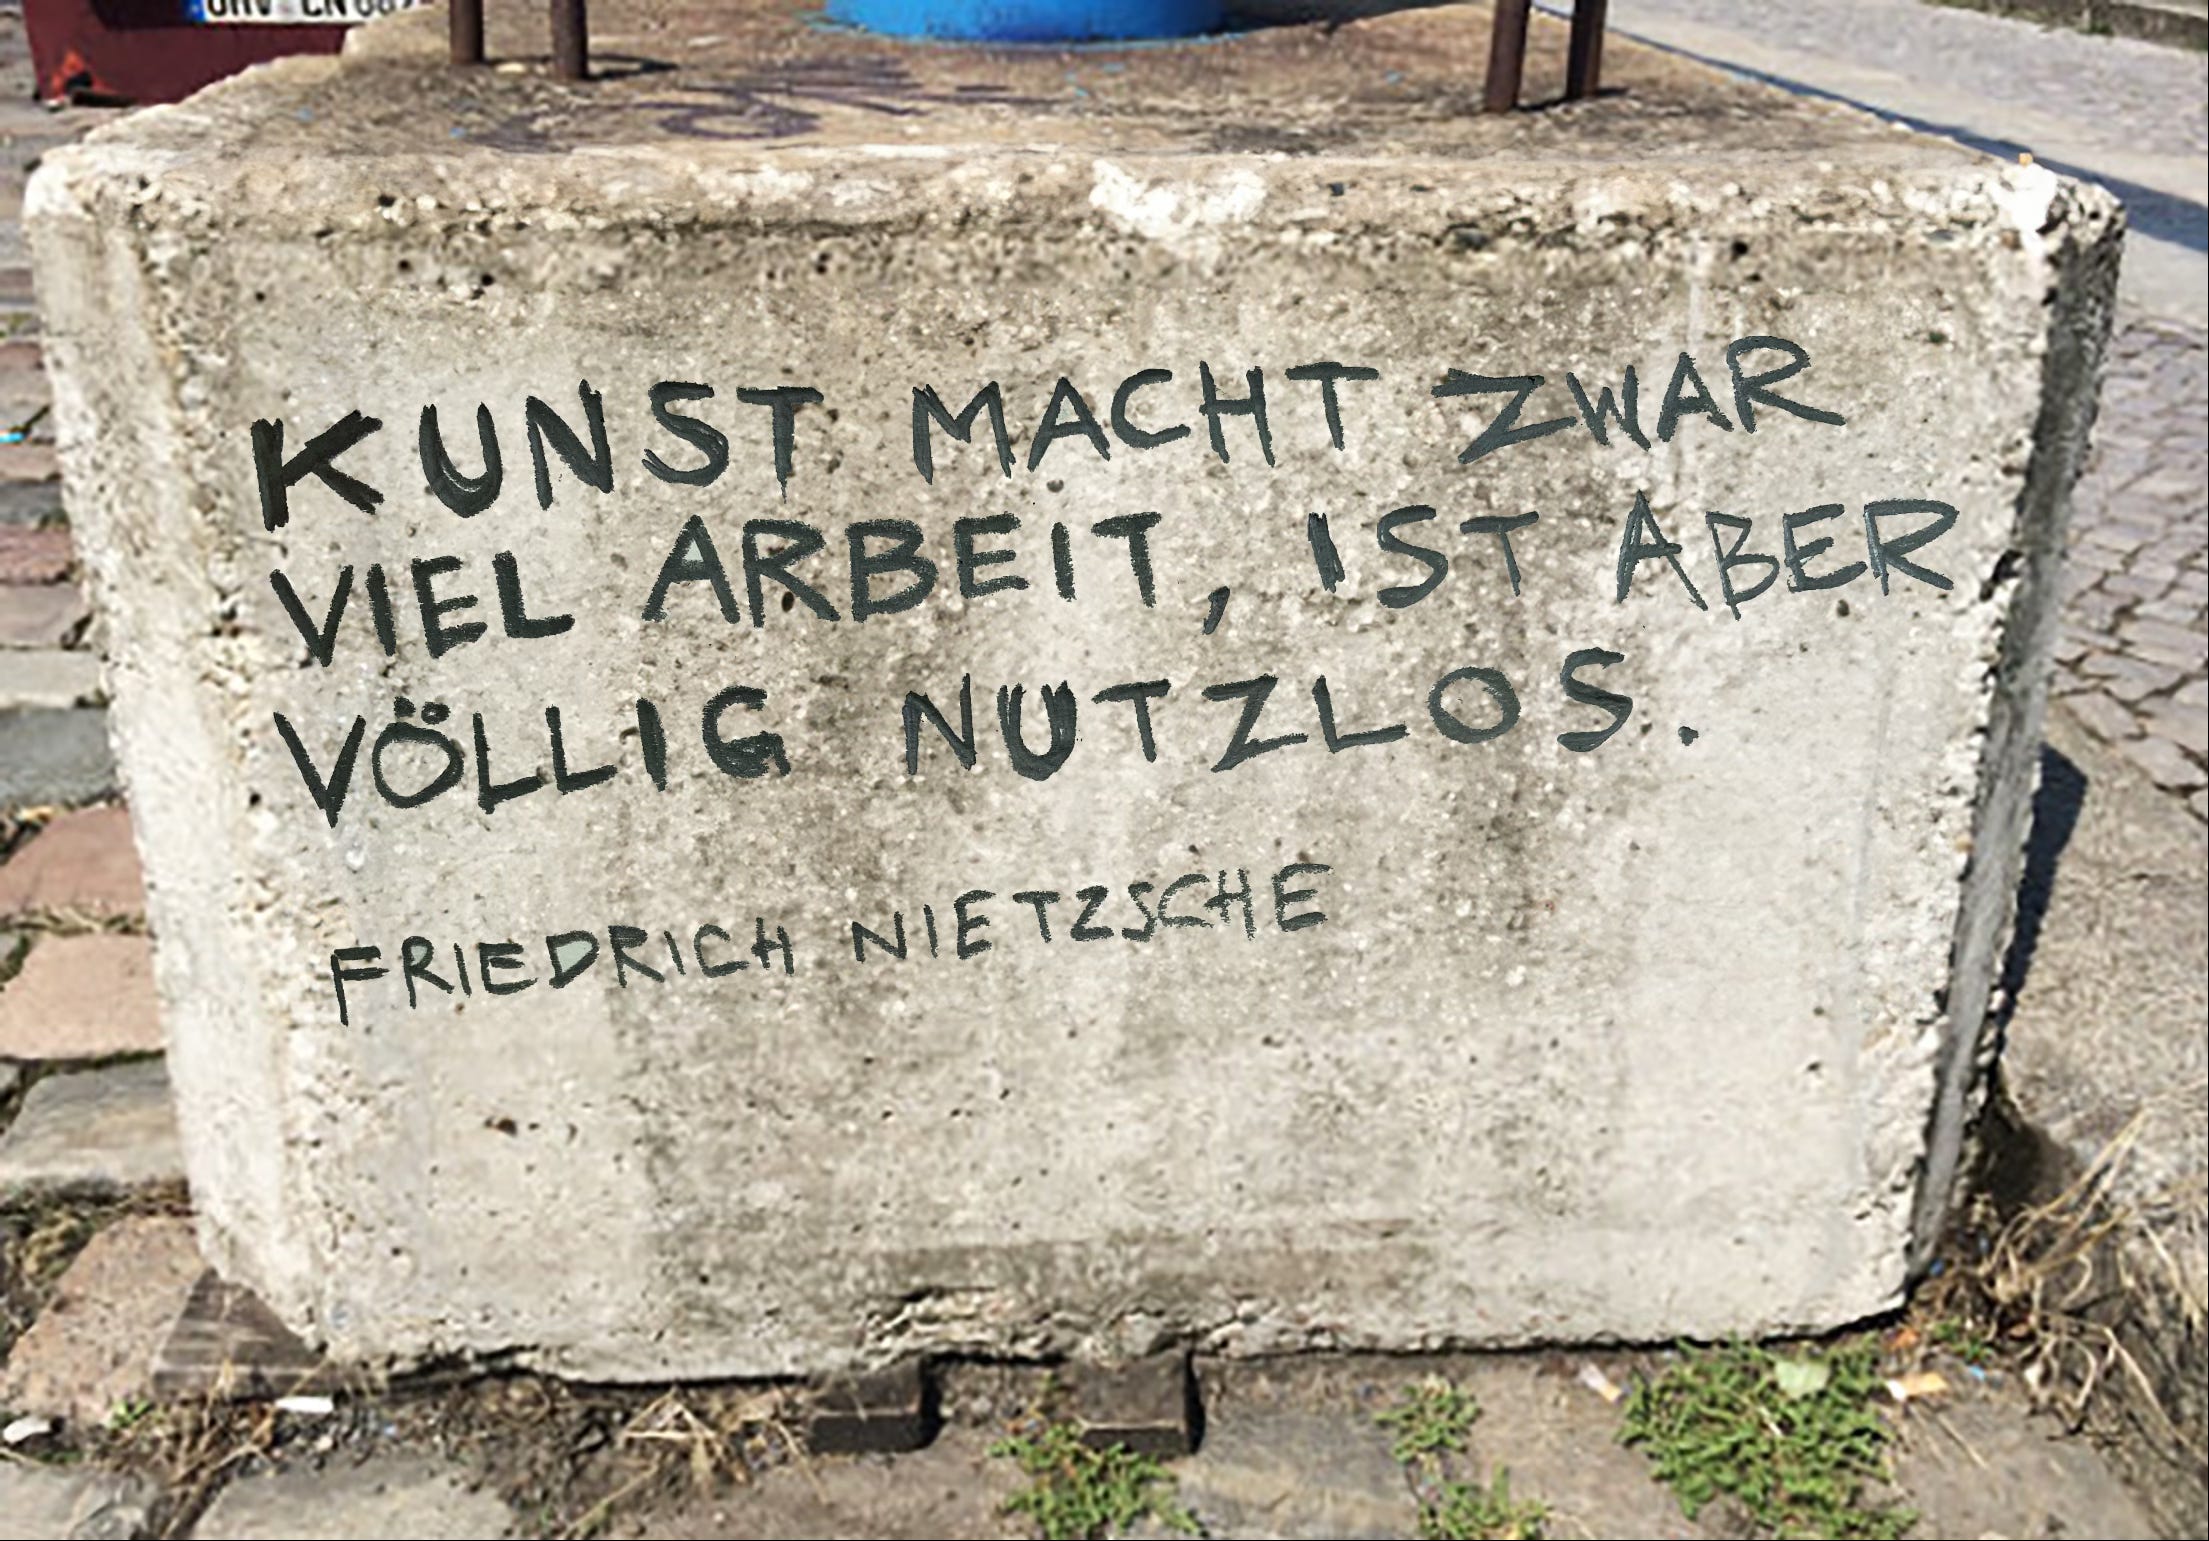 KUNST MACHT ZWAR
VIEL ARBEIT, IST ABER
VÖLLIG NUTZLOS.
FRIEDRICH NIETZSCHE